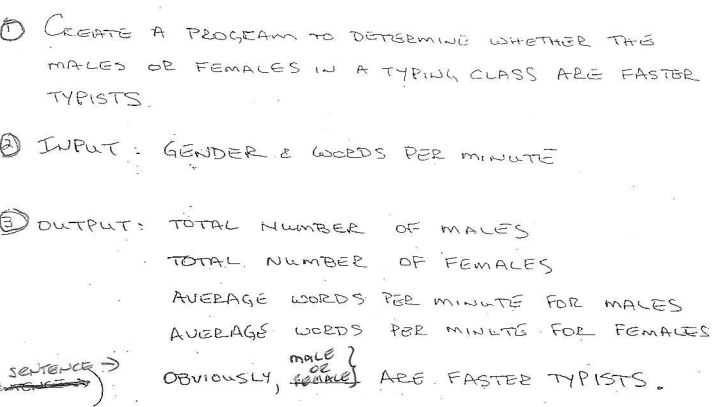 ① CREATE A PROGRAM TO DETERMINE WHETHER THE
MALES OR FEMALES IN A TYPING CLASS ARE FASTER
TYPISTS.
② INPUT: GENDER & WORDS PER MINUTE
③ OUTPUT: TOTAL NUMBER OF MALES
TOTAL NUMBER OF FEMALES
AVERAGE WORDS PER MINUTE FOR MALES
AVERAGE WORDS PER MINUTE FOR FEMALES
SENTENCE → OBVIOUSLY, MALE OR FEMALE} ARE FASTER TYPISTS.